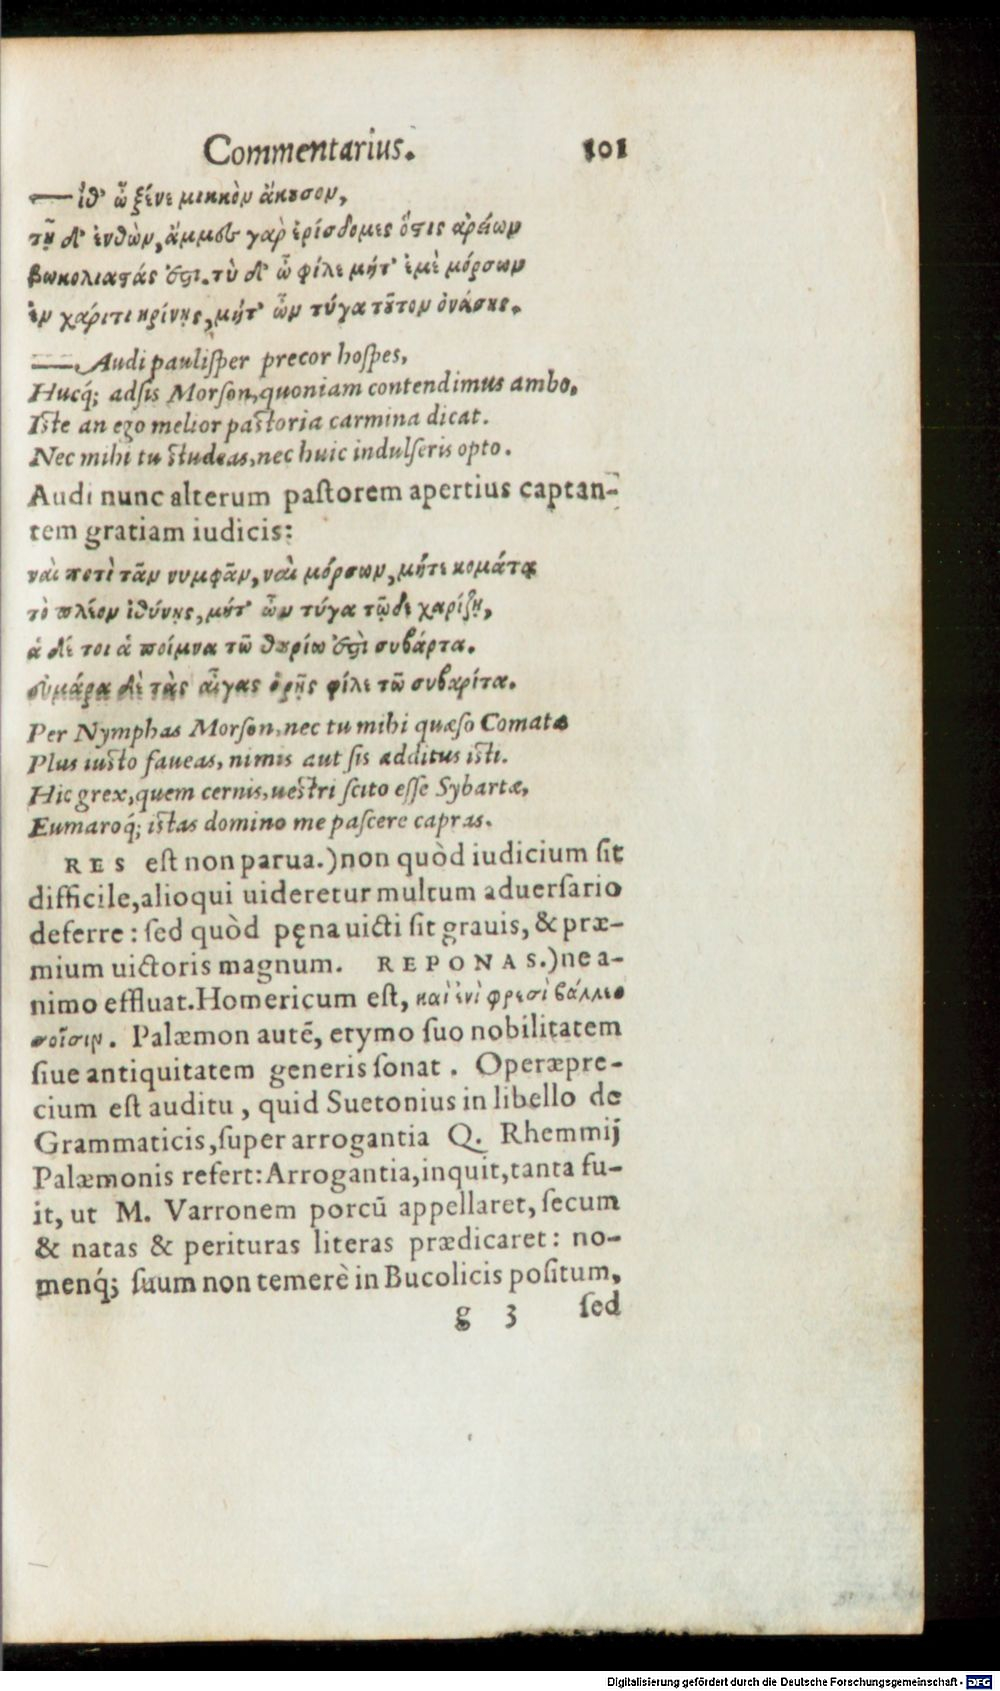 Commentarius. 101
— ἴθ' ὦ ξένε μικκὸν ἄκουσον,
τῇ δ' ἐνθὼν, ἄμμες γὰρ ἐρίσδομες ὅστις ἀρείων
βωκολιαστάς ἐστι. τὺ δ' ὦ φίλε μήτ' ἐμὲ μόρσων
ἐν χάριτι κρίνῃς, μήτ' ὦν τύγα τοῦτον ὀνάσῃς.
— Audi paulisper precor hospes,
Hucq́; adsis Morson, quoniam contendimus ambo,
Iste an ego melior pastoria carmina dicat.
Nec mihi tu studeas, nec huic indulseris opto.
Audi nunc alterum pastorem apertius captan-
tem gratiam iudicis:
ναὶ ποτὶ τᾶν νυμφᾶν, ναὶ μόρσων, μήτι κομάτᾳ
τὸ πλέον ἰθύνῃς, μήτ' ὦν τύγα τῷδε χαρίξῃ,
ἁ δέ τοι ἁ ποίμνα τῶ θυρίω ἐστὶ συβάρτα.
εὐμάρα δὲ τὰς αἶγας ὁρῇς φίλε τῶ συβαρίτα.
Per Nymphas Morson, nec tu mihi quæso Comatæ
Plus iusto faueas, nimis aut sis additus isti.
Hic grex, quem cernis, uestri scito esse Sybartæ,
Eumaroq́; istas domino me pascere capras.
RES est non parua.) non quòd iudicium sit
difficile, alioqui uideretur multum aduersario
deferre: sed quòd pęna uicti sit grauis, & præ-
mium uictoris magnum. REPONAS.) ne a-
nimo effluat. Homericum est, καὶ ἐνὶ φρεσὶ βάλλεο
σοῖσιν. Palæmon autē, etymo suo nobilitatem
siue antiquitatem generis sonat. Operæpre-
cium est auditu, quid Suetonius in libello de
Grammaticis, super arrogantia Q. Rhemmij
Palæmonis refert: Arrogantia, inquit, tanta fu-
it, ut M. Varronem porcū appellaret, secum
& natas & perituras literas prædicaret: no-
menq́; suum non temerè in Bucolicis positum,
g 3 sed
Digitalisierung gefördert durch die Deutsche Forschungsgemeinschaft - DFG